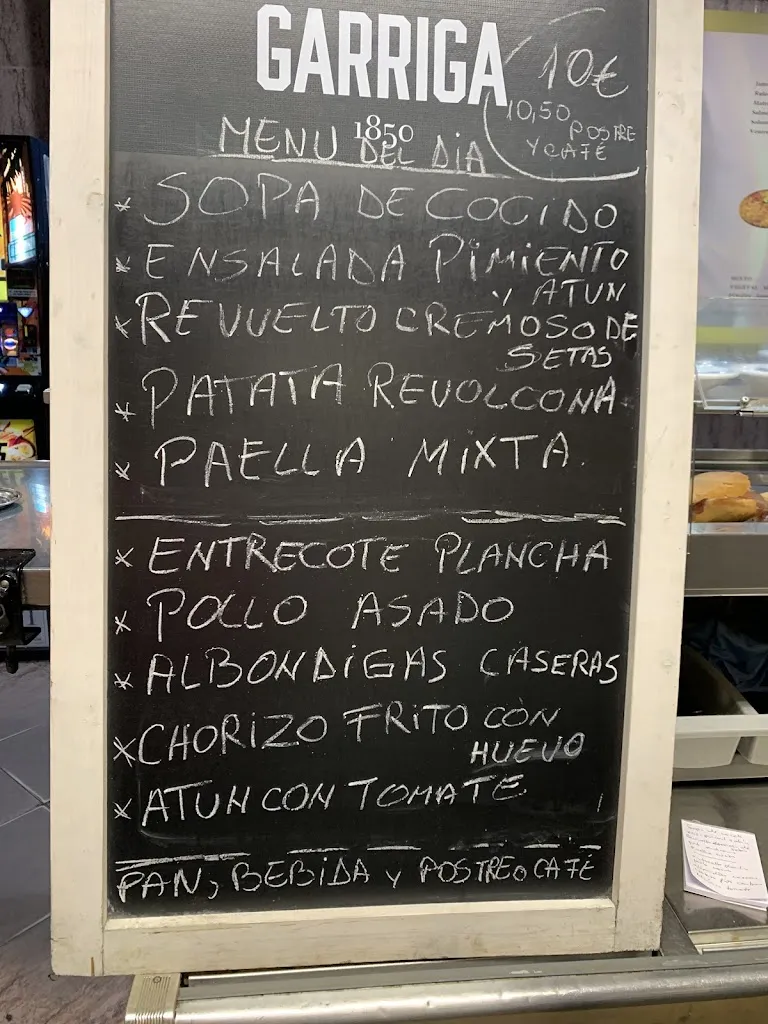 GARRIGA
1850
10€
10,50
POSTRE
Y CAFÉ
MENU DEL DIA
* SOPA DE COCIDO
* ENSALADA PIMIENTO
Y ATUN
* REVUELTO CREMOSO DE
SETAS
* PATATA REVOLCONA
* PAELLA MIXTA.
* ENTRECOTE PLANCHA
* POLLO ASADO
* ALBONDIGAS CASERAS
* CHORIZO FRITO CON
HUEVO
* ATUN CON TOMATE
PAN, BEBIDA Y POSTRE O CAFÉ